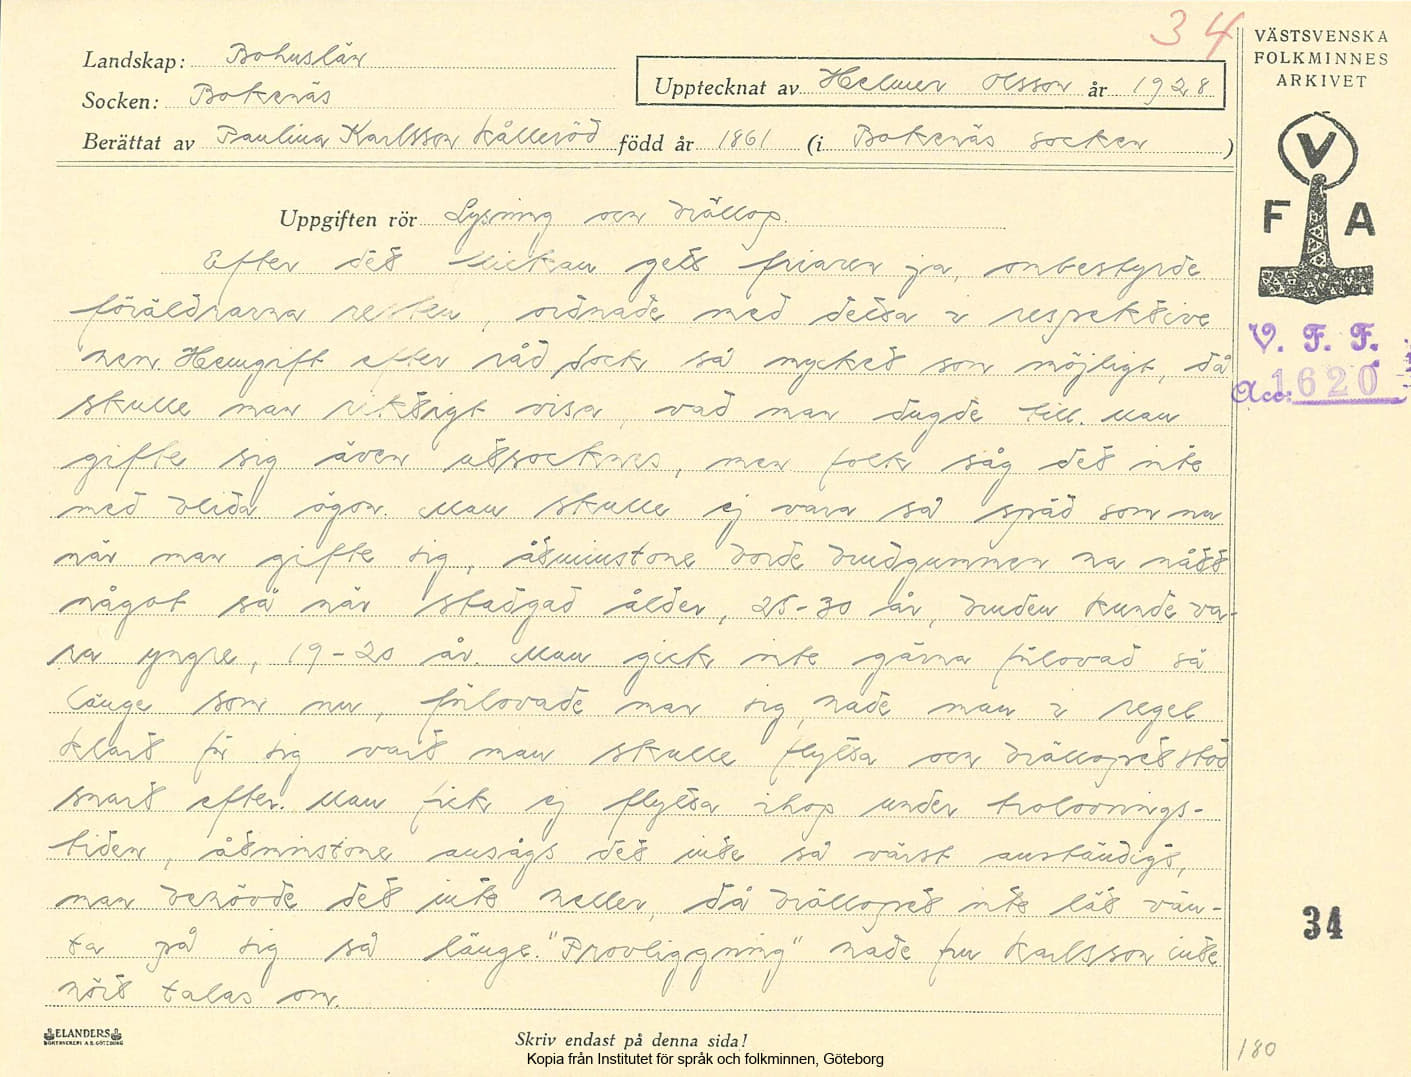 34
VÄSTSVENSKA
FOLKMINNES
ARKIVET
Landskap: Bohuslän
Upptecknat av Helmer Olsson år 1928
Socken: Bokenäs
Berättat av Paulina Karlsson Kålleröd född år 1861 (i Bokenäs socken )
V
F A
Uppgiften rör Lysning och bröllop.
Efter det flickan gett friaren ja, ombestyrde
föräldrarna resten, ordnade med detta i respektive
hem. Hemgift efter råd dock så mycket som möjligt, då
skulle man riktigt visa, vad man dugde till. Man
gifte sig även utsocknes, men folk såg det inte
med blida ögon. Man skulle ej vara så späd som nu
när man gifte sig, åtminstone borde brudgummen ha nått
något så när stadgad ålder, 25-30 år, bruden kunde va-
ra yngre, 19-20 år. Man gick inte gärna förlovad så
länge som nu, förlovade man sig, hade man i regel
klart för sig vart man skulle flytta och bröllopet stod
snart efter. Man fick ej flytta ihop under trolovnings-
tiden, åtminstone ansågs det inte så värst anständigt,
man behövde det inte heller, då bröllopet inte lät vän-
ta på sig så länge. "Provliggning" hade fru Karlsson inte
hört talas om.
V. F. F.
Acc: 1620
34
ELANDERS
BOKTRYCKERI A.B. GÖTEBORG
Skriv endast på denna sida!
Kopia från Institutet för språk och folkminnen, Göteborg
180